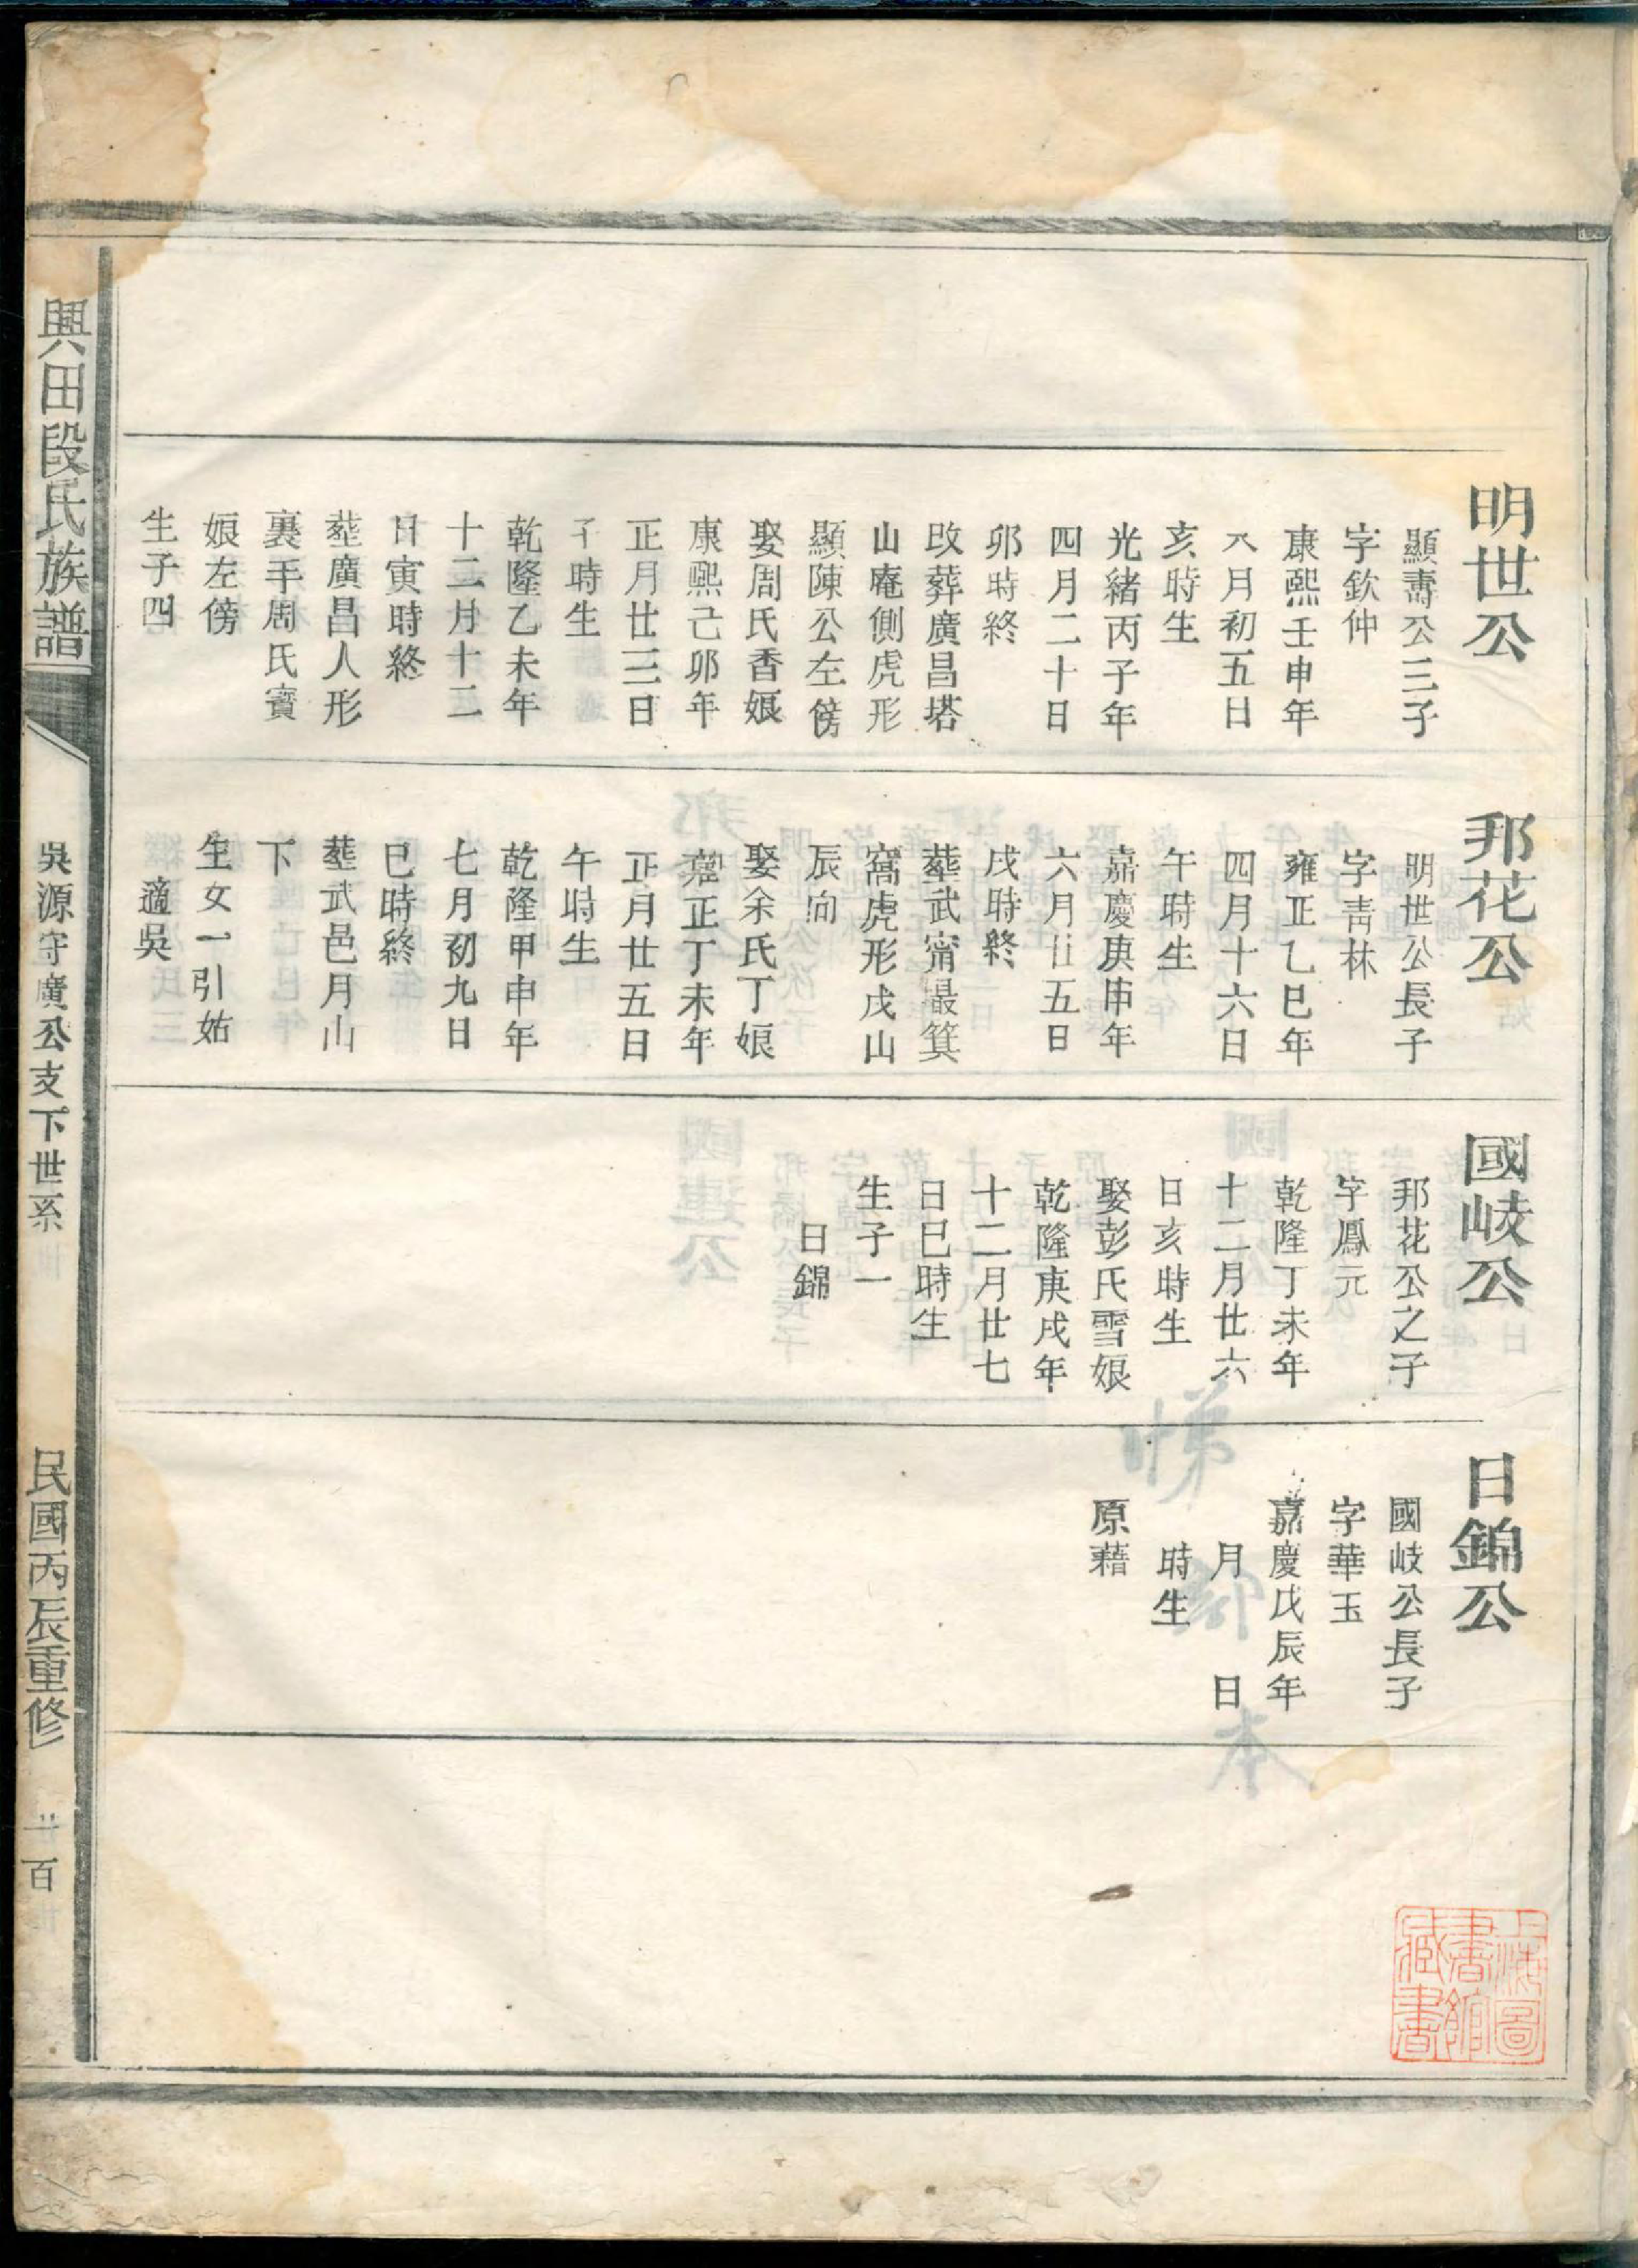 明世公
顯壽公三子
字欽仲
康熙壬申年
八月初五日
亥時生
光緒丙子年
四月二十日
卯時終
改葬廣昌塔
山庵側虎形
顯陳公左傍
娶周氏香娘
康熙己卯年
正月廿三日
子時生
乾隆乙未年
十二月十二
日寅時終
塟廣昌人形
裏手周氏寶
娘左傍
生子四
邦花公
明世公長子
字靑林
雍正乙巳年
四月十六日
午時生
嘉慶庚申年
六月廿五日
戌時終
塟武甯最箕
窩虎形戌山
辰向
娶余氏丁娘
雍正丁未年
正月廿五日
午時生
乾隆甲申年
七月初九日
巳時終
塟武邑月山
下
生女一引姑
適吳
國岐公
邦花公之子
字鳳元
乾隆丁未年
十二月廿六
日亥時生
娶彭氏雪娘
乾隆庚戌年
十二月廿七
日巳時生
生子一
日錦
日錦公
國岐公長子
字華玉
嘉慶戊辰年
月 日
時生
原藉
興田段氏族譜
吳源守廣公支下世系
民國丙辰重修
百
上海圖
書館
藏書
本